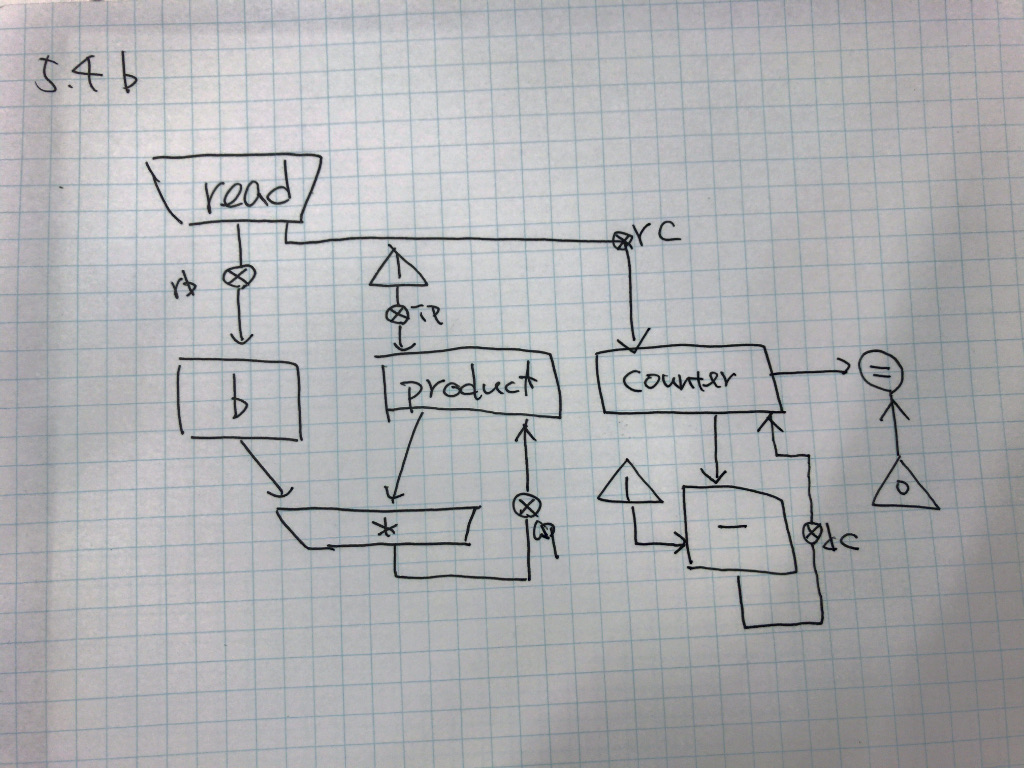 5.4 b
read
rc
1
rb
IP
b
product
counter
=
1
0
*
-
dc